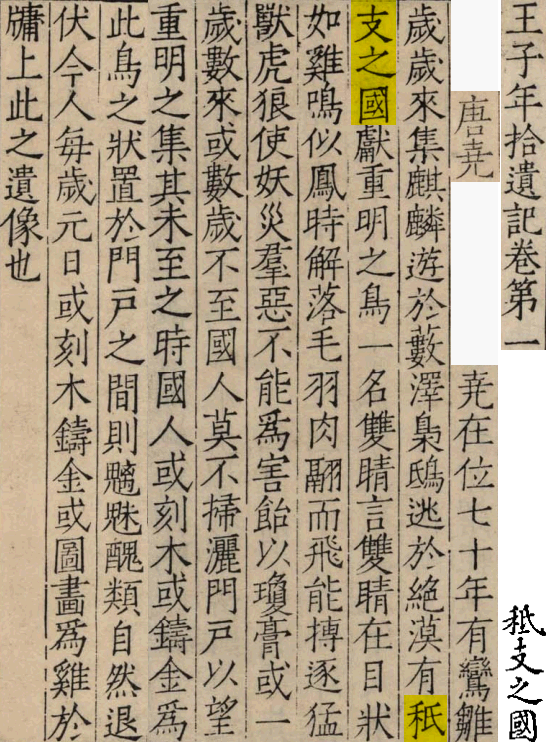 王子年拾遺記卷第一
唐堯
堯在位七十年有鸞雛
歲歲來集麒麟遊於藪澤梟鴟逃於絕漠有秖
支之國獻重明之鳥一名雙睛言雙睛在目狀
如雞鳴似鳳時解落毛羽肉翮而飛能搏逐猛
獸虎狼使妖災羣惡不能爲害飴以瓊膏或一
歲數來或數歲不至國人莫不掃灑門戶以望
重明之集其未至之時國人或刻木或鑄金爲
此鳥之狀置於門戶之間則魑魅醜類自然退
伏今人每歲元日或刻木鑄金或圖畫爲雞於
牖上此之遺像也
秪支之國